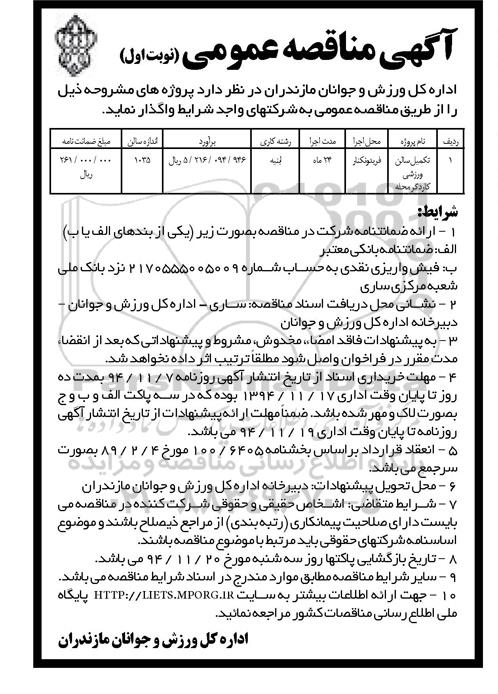 آگهی مناقصه عمومی (نوبت اول)
اداره کل ورزش و جوانان مازندران در نظر دارد پروژه های مشروحه ذیل
را از طریق مناقصه عمومی به شرکتهای واجد شرایط واگذار نماید.
ردیف نام پروژه محل اجرا مدت اجرا رشته کاری برآورد اندازه سالن مبلغ ضمانت نامه
۱ تکمیل سالن ورزشی کاردگر محله فریدونکنار ۲۴ ماه ابنیه ۵/۲۱۶/۰۹۴/۹۴۶ ریال ۱۰۳۵ ۲۶۱/۰۰۰/۰۰۰ ریال
شرایط:
۱ - ارائه ضمانتنامه شرکت در مناقصه بصورت زیر (یکی از بندهای الف یا ب)
الف: ضمانتنامه بانکی معتبر
ب: فیش واریزی نقدی به حساب شماره ۲۱۷۰۵۵۵۰۰۵۰۰۹ نزد بانک ملی
شعبه مرکزی ساری
۲ - نشانی محل دریافت اسناد مناقصه: ساری - اداره کل ورزش و جوانان -
دبیرخانه اداره کل ورزش و جوانان
۳ - به پیشنهادات فاقد امضاء، مخدوش، مشروط و پیشنهاداتی که بعد از انقضاء
مدت مقرر در فراخوان واصل شود مطلقاً ترتیب اثر داده نخواهد شد.
۴ - مهلت خریداری اسناد از تاریخ انتشار آگهی روزنامه ۹۴/۱۱/۷ بمدت ده
روز تا پایان وقت اداری ۱۳۹۴/۱۱/۱۷ بوده که در سه پاکت الف و ب و ج
بصورت لاک و مهر شده باشد. ضمناً مهلت ارائه پیشنهادات از تاریخ انتشار آگهی
روزنامه تا پایان وقت اداری ۹۴/۱۱/۱۹ می باشد.
۵ - انعقاد قرارداد براساس بخشنامه ۱۰۰/۶۴۰۵ مورخ ۸۹/۲/۴ بصورت
سرجمع می باشد.
۶ - محل تحویل پیشنهادات: دبیرخانه اداره کل ورزش و جوانان مازندران
۷ - شرایط متقاضی: اشخاص حقیقی و حقوقی شرکت کننده در مناقصه می
بایست دارای صلاحیت پیمانکاری (رتبه بندی) از مراجع ذیصلاح باشند و موضوع
اساسنامه شرکتهای حقوقی باید مرتبط با موضوع مناقصه باشند.
۸ - تاریخ بازگشایی پاکتها روز سه شنبه مورخ ۹۴/۱۱/۲۰ می باشد.
۹ - سایر شرایط مناقصه مطابق موارد مندرج در اسناد شرایط مناقصه می باشد.
۱۰ - جهت ارائه اطلاعات بیشتر به سایت HTTP://LIETS.MPORG.IR پایگاه
ملی اطلاع رسانی مناقصات کشور مراجعه نمائید.
اداره کل ورزش و جوانان مازندران